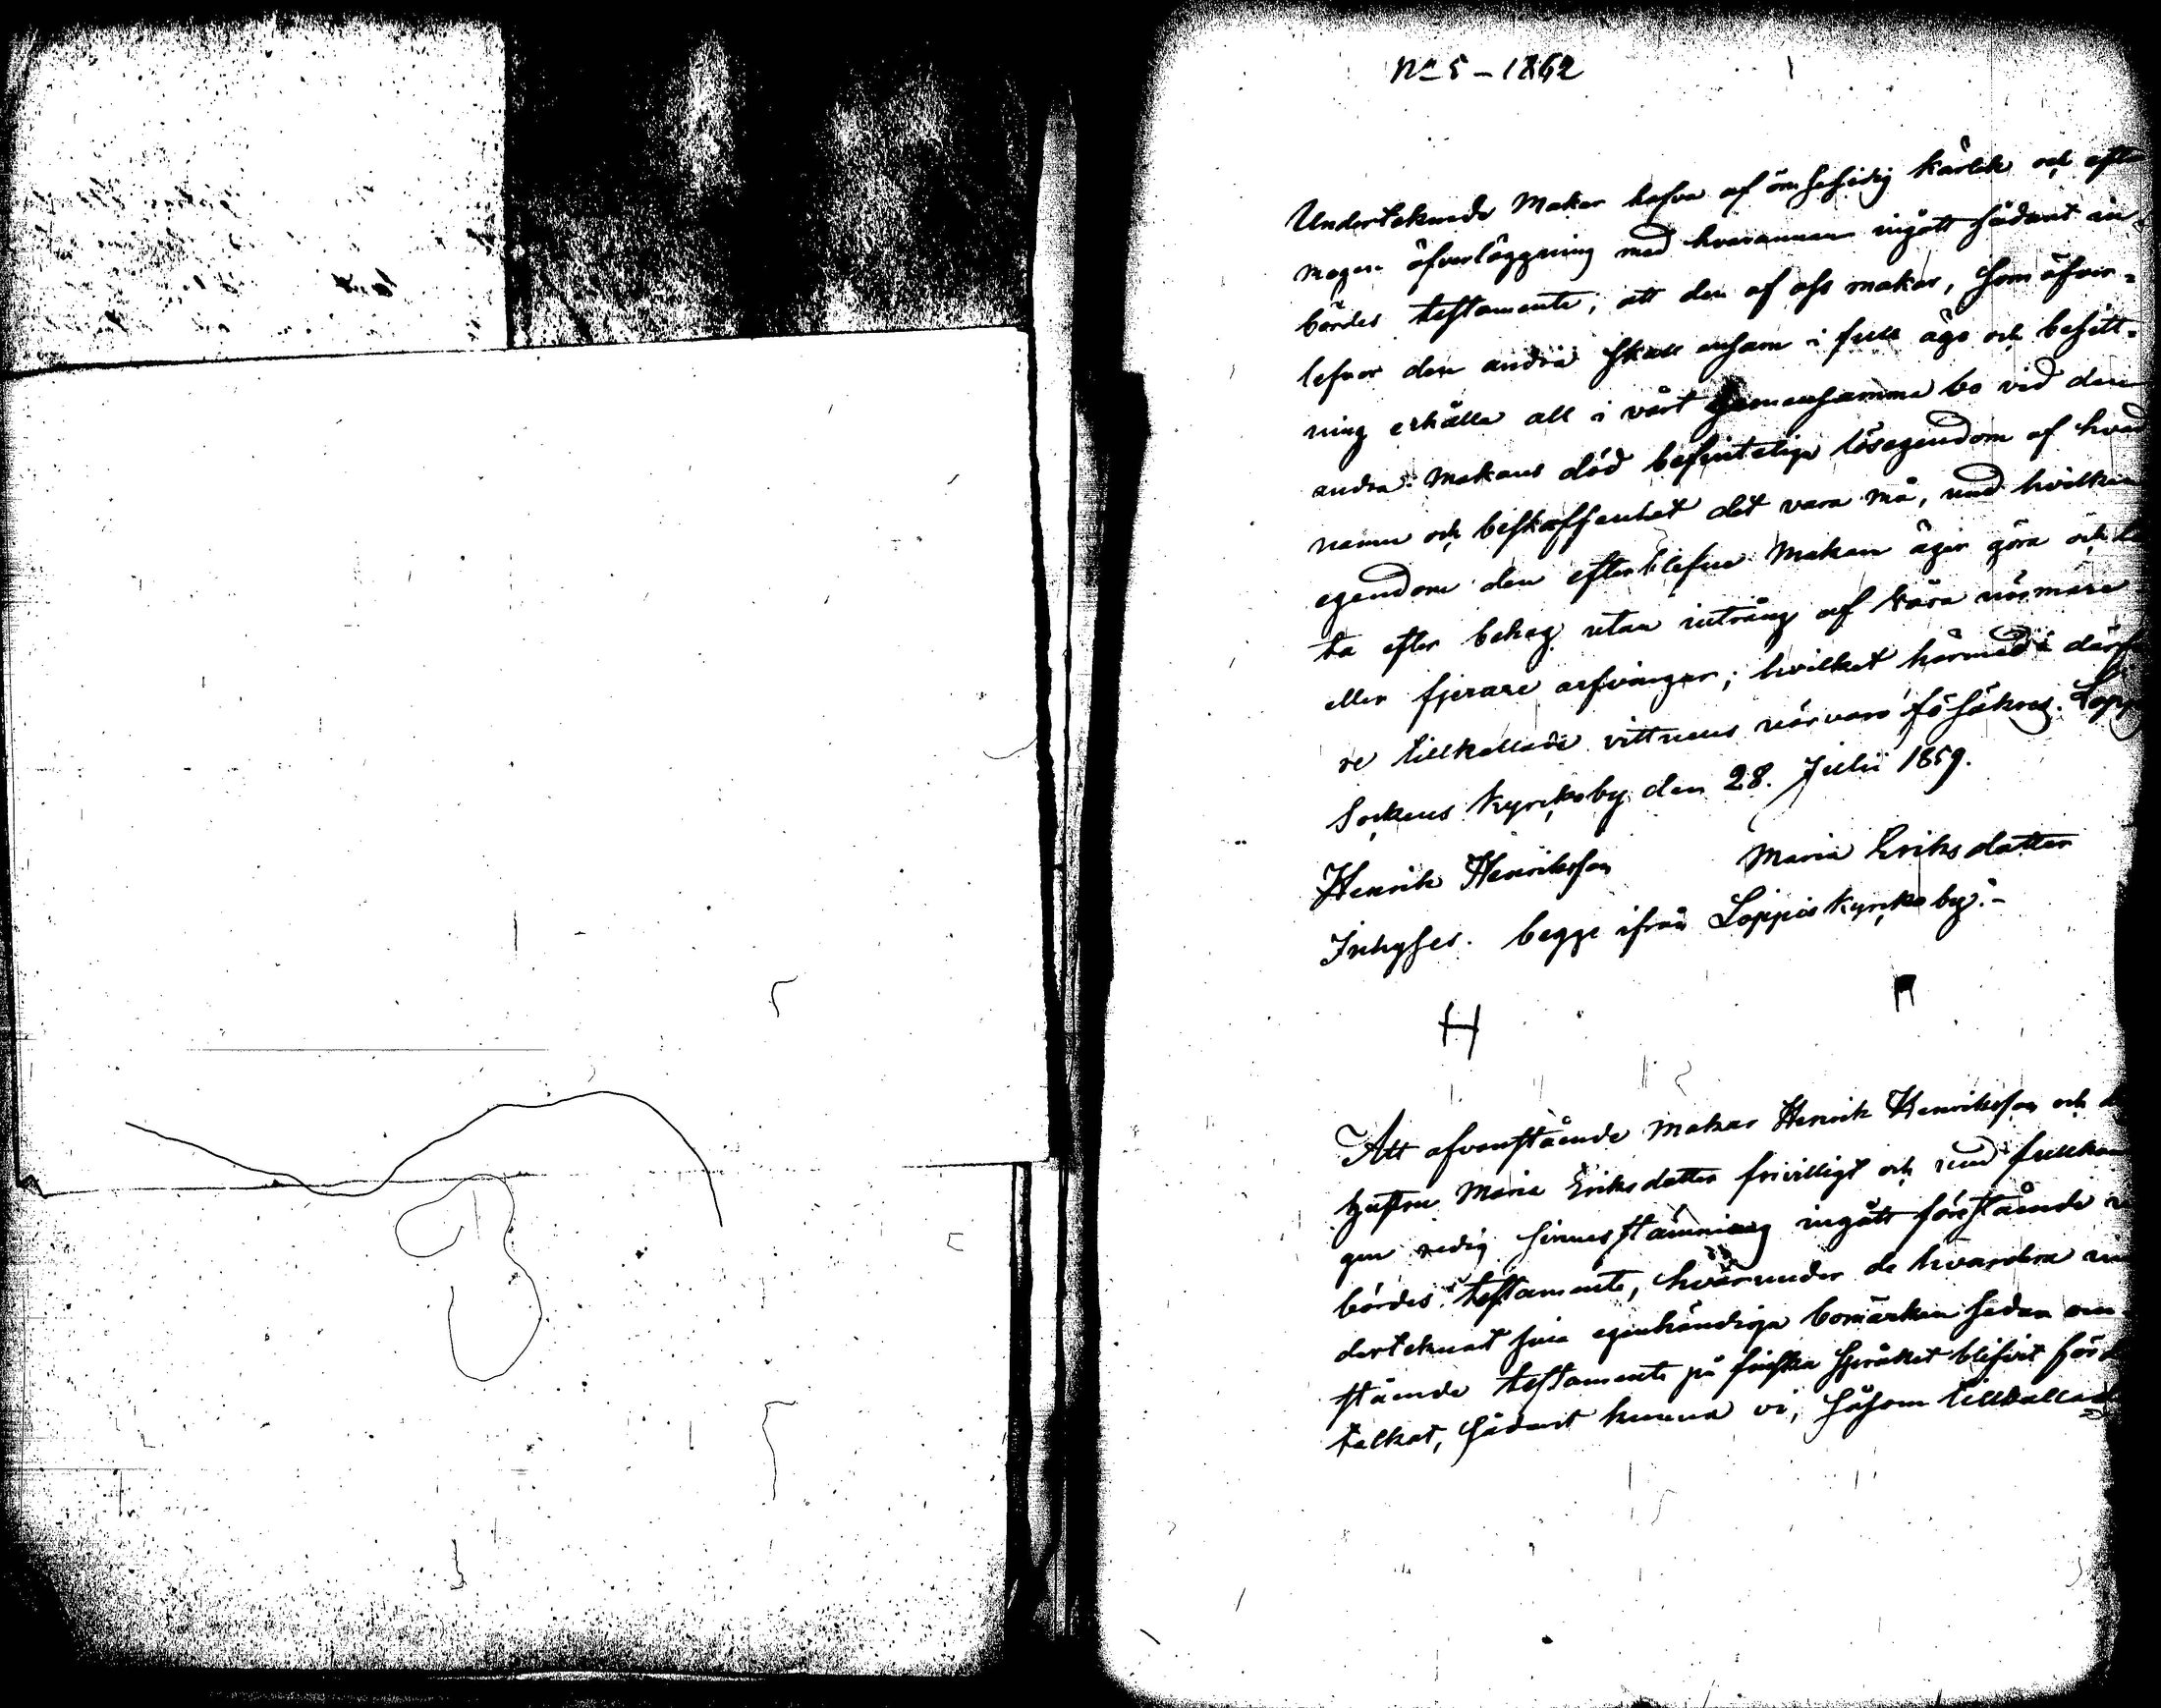 No 5 – 1862
Undertecknade Makar hafva af ömsesidig kärlek och efter
mogen öfverläggning med hvarannan ingått sådant in¬
bördes testamente, att den af oss makar, som öfver¬
lefver den andra skall ensam i full ägo och besitt¬
ning erhålla all i vårt gemensamma bo vid den
andra Makans död befintelige lösegendom af hvad
namn och beskaffenhet det vara må, med hvilken
egendom den efterblefne Makan äger göra och lå
ta efter behag utan intrång af våra närmare
eller fjerare arfvingar; hvilket härmed i därf
re tillkallade vittnens närvaro försäkras. Lopp
Sockens Kyrkoby den 28. Julii 1859.
Henrik Henriksson Maria Eriksdatter
Inhyses. begge ifrån Loppis Kyrkoby.–
H
Att ofvanstående makar Henrik Henriksson och d
hustru Maria Eriksdatter frivilligt och med fullkom
gen redig sinnesstämning ingått förestående in
bördes testamente, hvarunder de hvardera un
dertecknat sina egenhändiga bomärken sedan om
stående testamente på finska språket blifvit för d
tolkat, sådant kunna vi, såsom tillkallade